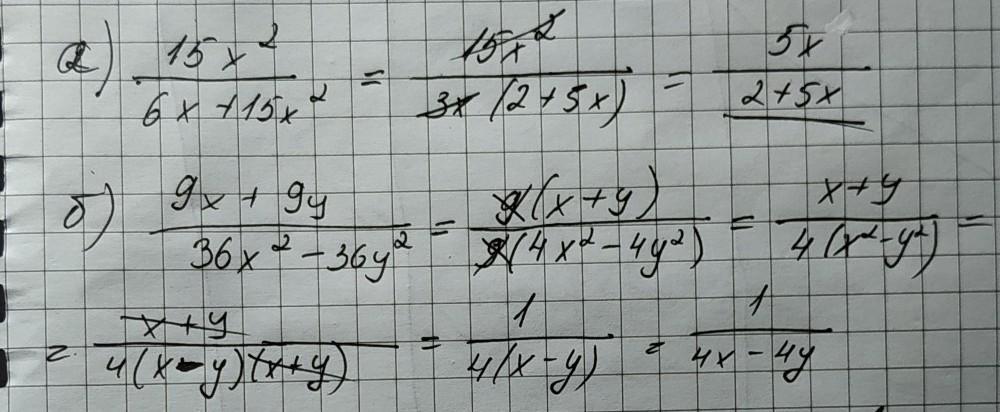 а) 15x²/(6x+15x²) = 15x²/(3x(2+5x)) = 5x/(2+5x)
б) (9x+9y)/(36x²-36y²) = 9(x+y)/(9(4x²-4y²)) = (x+y)/(4(x²-y²)) =
= (x+y)/(4(x-y)(x+y)) = 1/(4(x-y)) = 1/(4x-4y)